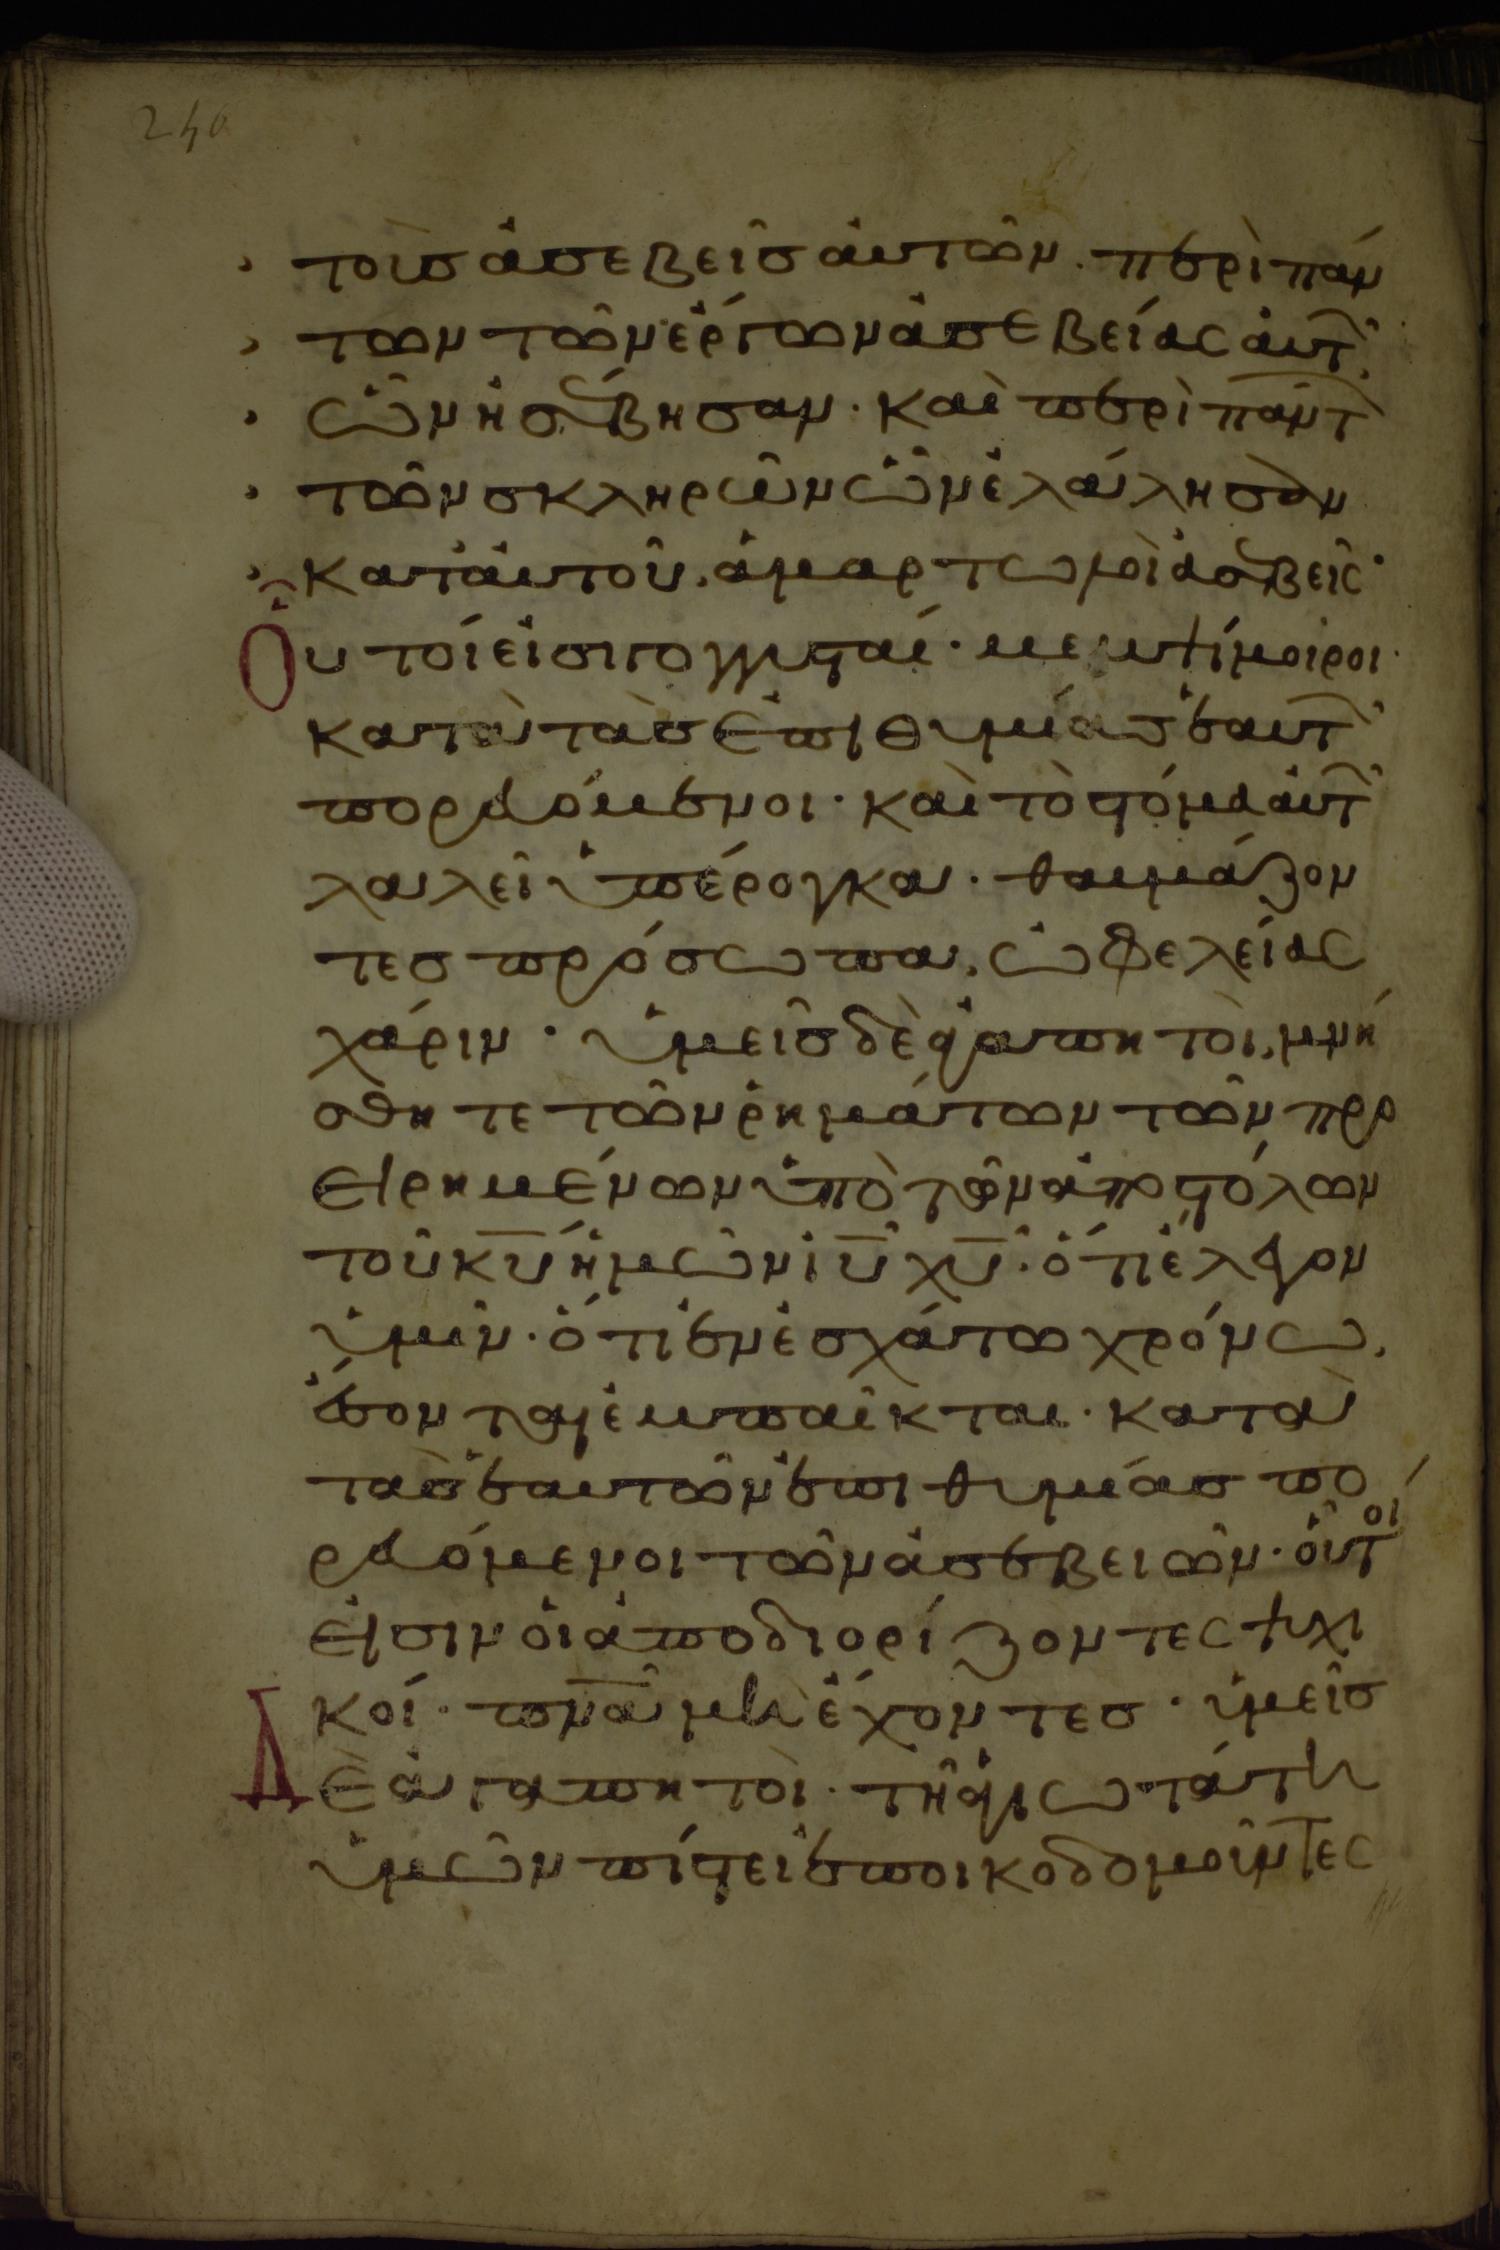 240
τοὺς ἀσεβεῖς αὐτῶν. περὶ πάν
των τῶν ἔργων ἀσεβείας αὐτ
ὧν ἠσέβησαν· καὶ περὶ πάντ
τῶν σκληρῶν ὧν ἐλάλησαν
κατ' αὐτοῦ, ἁμαρτωλοὶ ἀσεβεῖς·
Οὗτοί εἰσι γογγυσταί· μεμψίμοιροι·
κατὰ τὰς ἐπιθυμίας ἑαυτ
πορευόμενοι· καὶ τὸ στόμα αὐτ
λαλεῖ ὑπέρογκα· θαυμάζον
τες πρόσωπα, ὠφελείας
χάριν· ὑμεῖς δὲ ἀγαπητοὶ, μνή
σθητε τῶν ῥημάτων τῶν προ
ειρημένων ὑπὸ τῶν ἀποστόλων
τοῦ κ̅υ̅ ἡμῶν ἰ̅υ̅ χ̅υ̅· ὅτι ἔλεγον
ὑμῖν· ὅτι ἐν ἐσχάτω χρόνω,
ἔσονται ἐμπαῖκται· κατὰ
τὰς ἑαυτῶν ἐπιθυμίας πο
ρευόμενοι τῶν ἀσεβειῶν· οὗτοι
εἰσιν οἱ ἀποδιορίζοντες ψυχι
κοί· π̅ν̅α̅ μὴ ἔχοντες· ὑμεῖς
Δὲ ἀγαπητοὶ· τῆ ἁγιωτάτη
ὑμῶν πίστει ἐποικοδομοῦντες